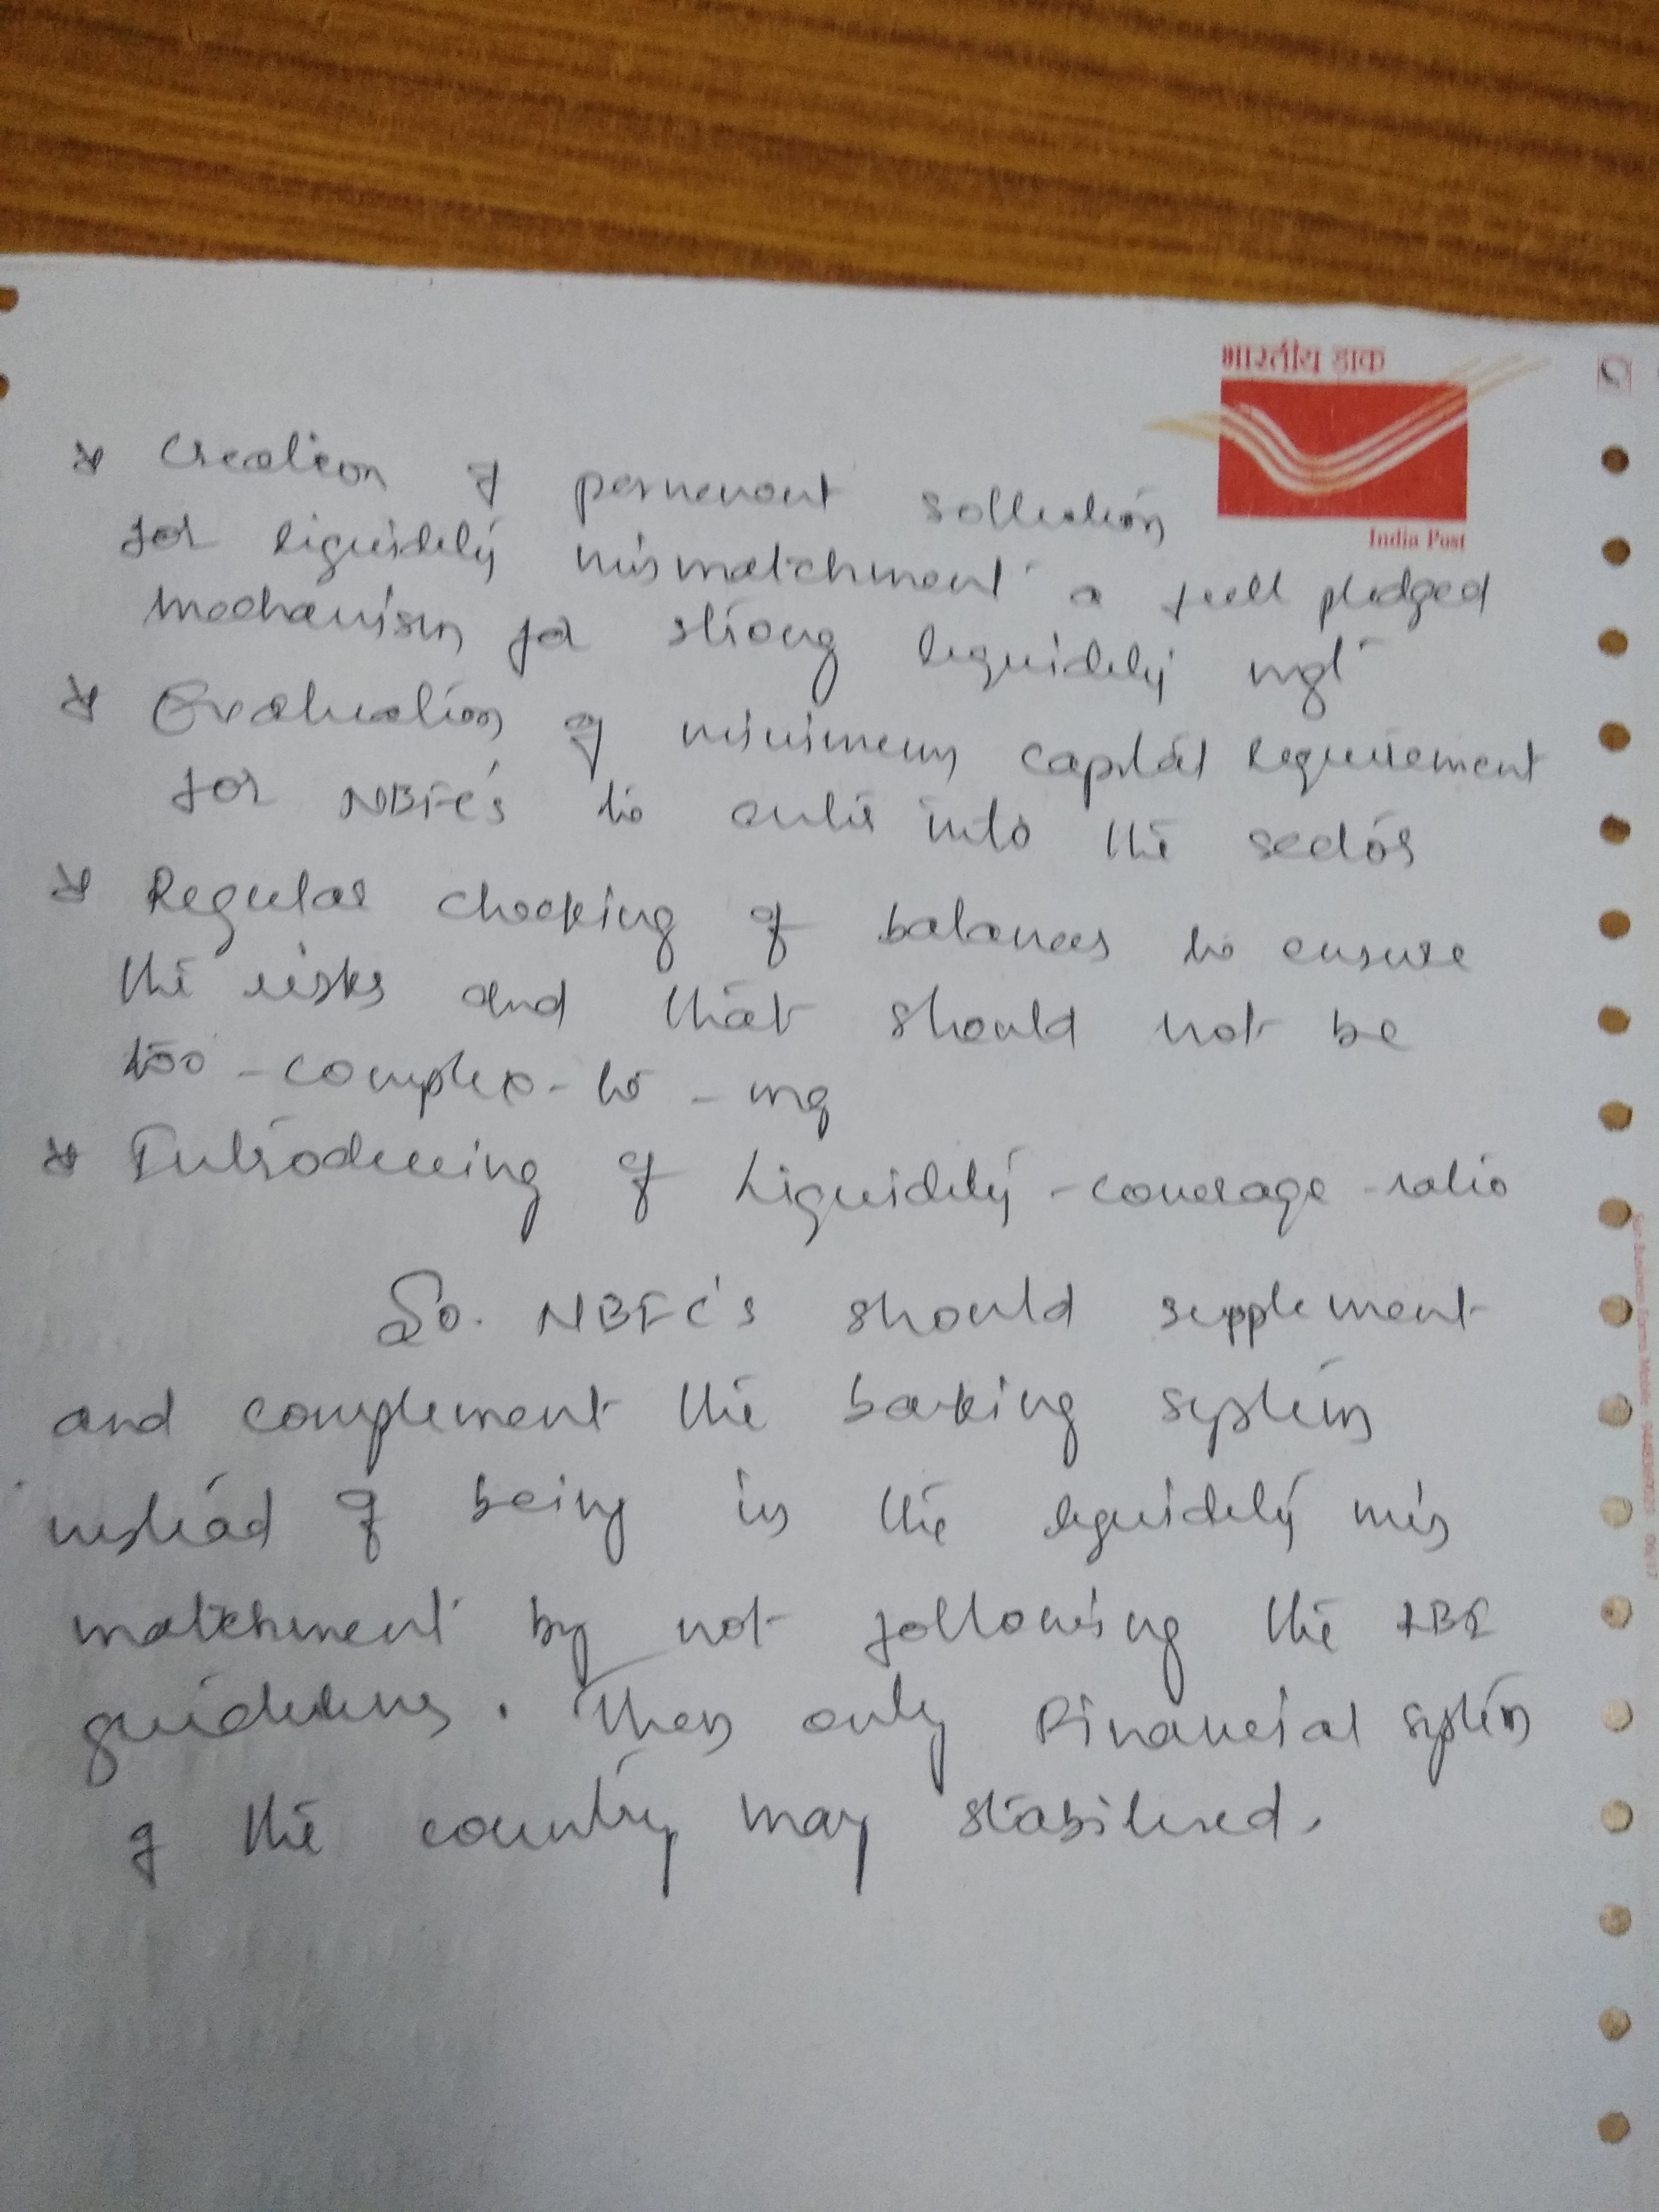 भारतीय डाक
India Post
* Creation of permenant sollution
for liquidity mismatchment a full pledged
mechanism for strong liquidity mgt
* Evaluation of minimum capital requirement
for NBFC's to enter into the sector
* Regular checking of balances to ensure
the risks and that should not be
too-complex-to-mg
* Introducing of Liquidity-coverage-ratio
So. NBFC's should supplement
and complement the banking system
instead of being in the liquidity mis
matchment by not following the RBI
guidelines. Then only Financial system
of the country may stabilised.